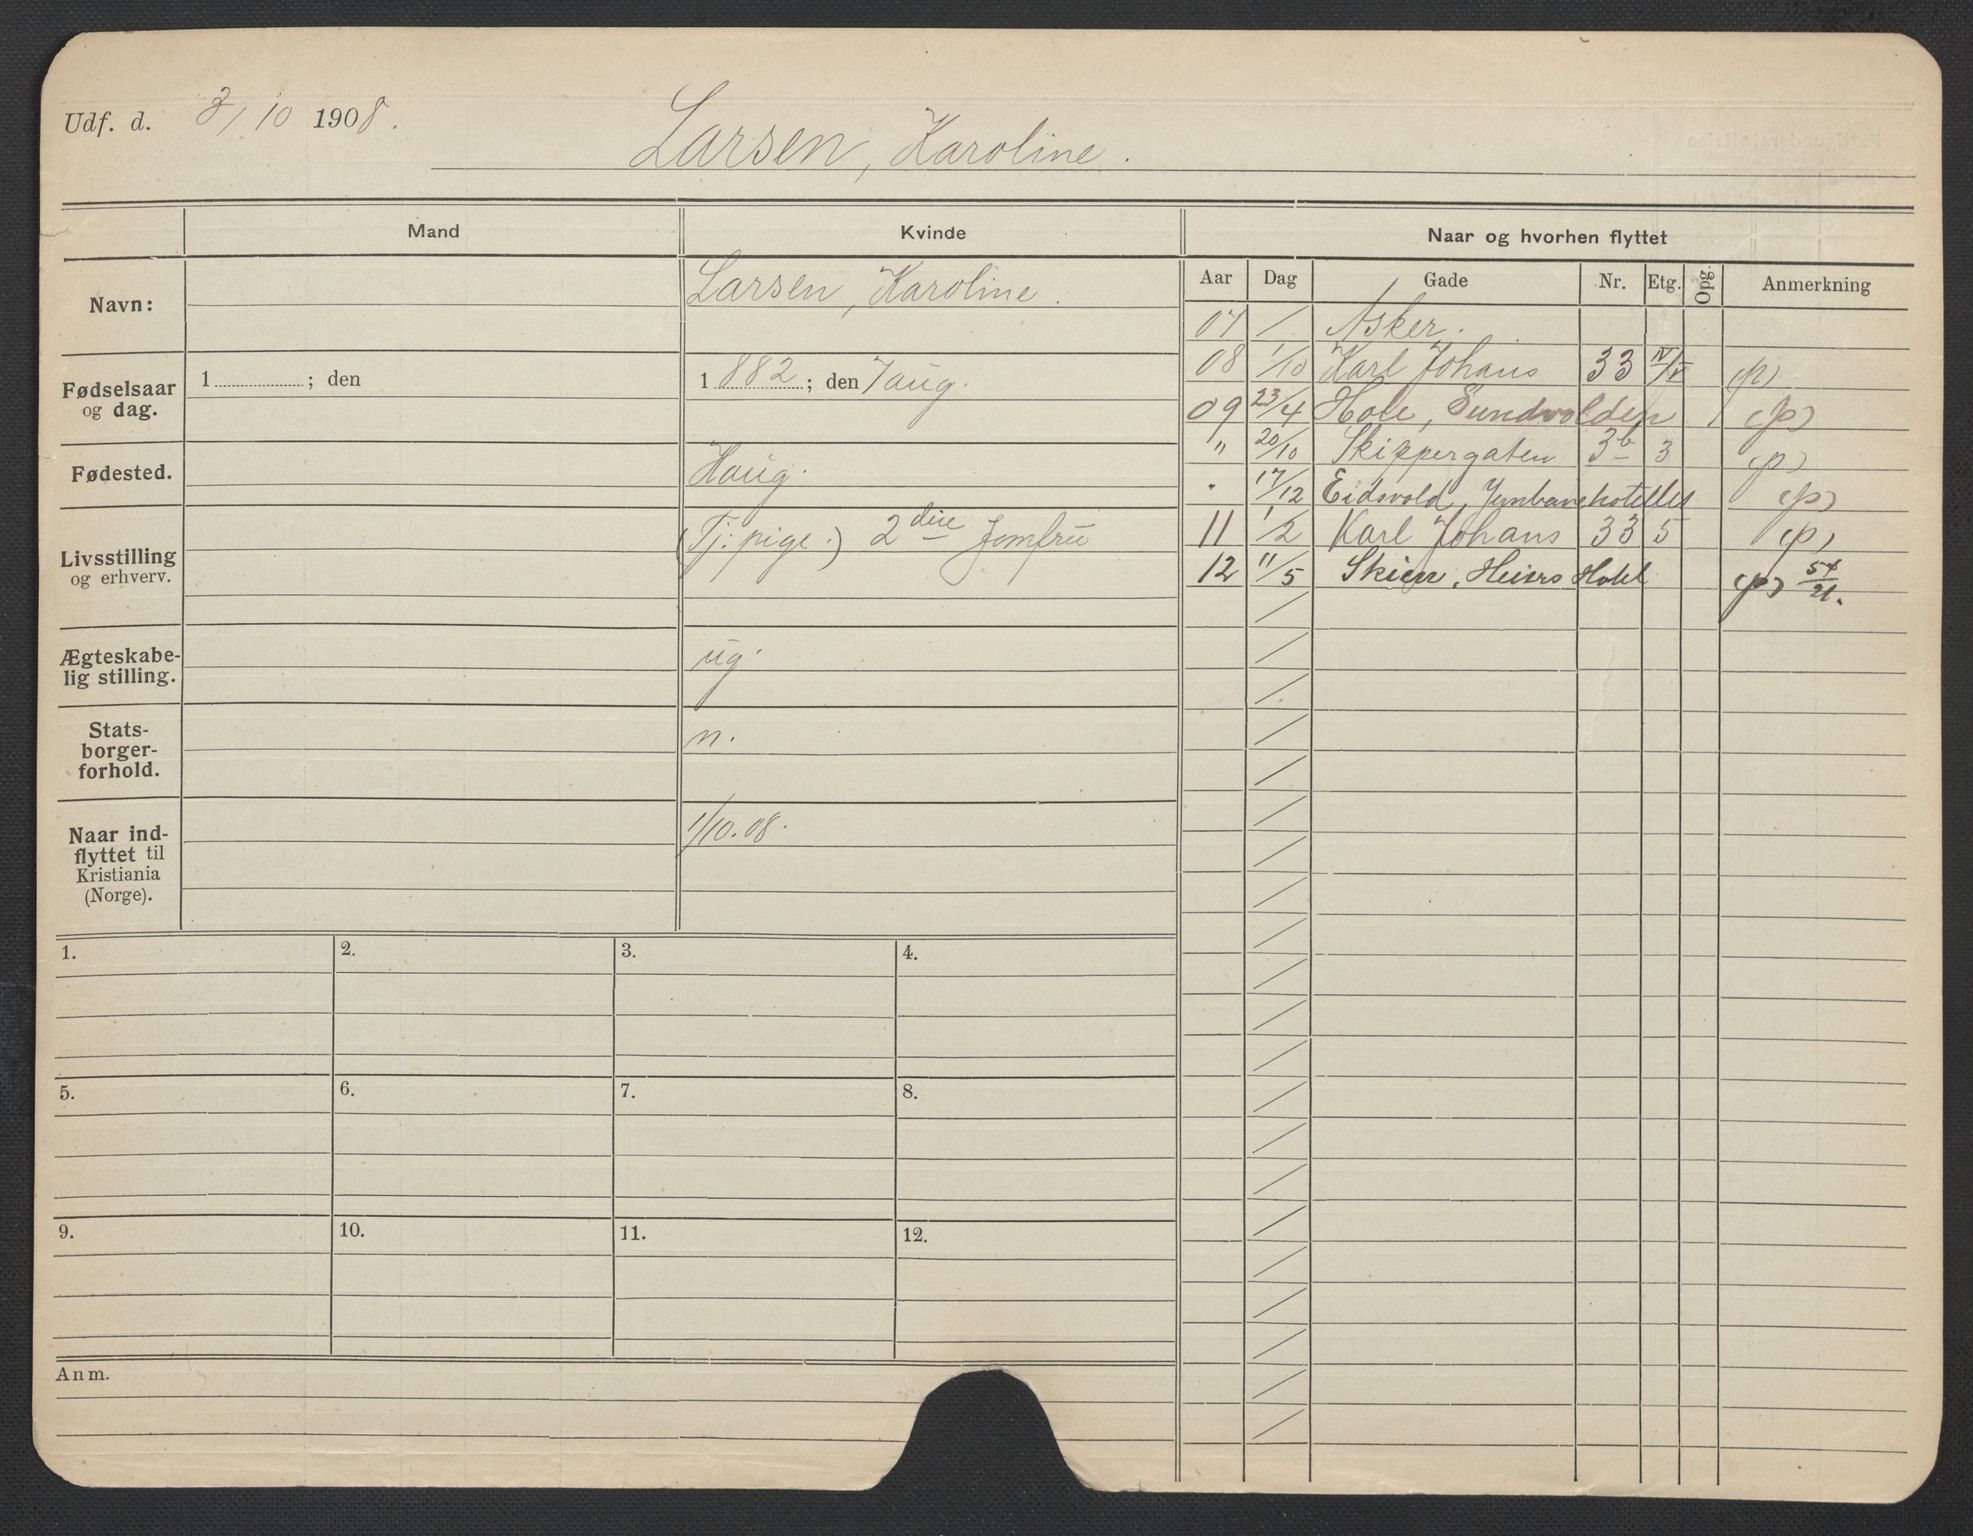 Udf. d. 3/10 1908.
Larsen, Karoline.
Mand
Kvinde
Naar og hvorhen flyttet
Navn:
Larsen, Karoline.
Fødselsaar og dag.
1 ; den
1 882 ; den 7 aug.
Fødested.
Haug.
Livsstilling og erhverv.
(Tj. pige.) 2den Jomfru
Ægteskabe-
lig stilling.
ug.
Stats-
borger-
forhold.
n.
Naar ind-
flyttet til
Kristiania
(Norge).
1/10.08.
Aar Dag Gade Nr. Etg. Opg. Anmerkning
07 / Asker.
08 1/10 Karl Johans 33 IV/V (p)
09 23/4 Hole, Sundvolden (p)
" 20/10 Skippergaten 3b 3 (p)
" 17/12 Eidsvold, Jernbanehotellet (p)
11 1/2 Karl Johans 33 5 (p)
12 11/5 Skien, Høiers Hotel (p) 54/21.
1. 2. 3. 4.
5. 6. 7. 8.
9. 10. 11. 12.
Anm.